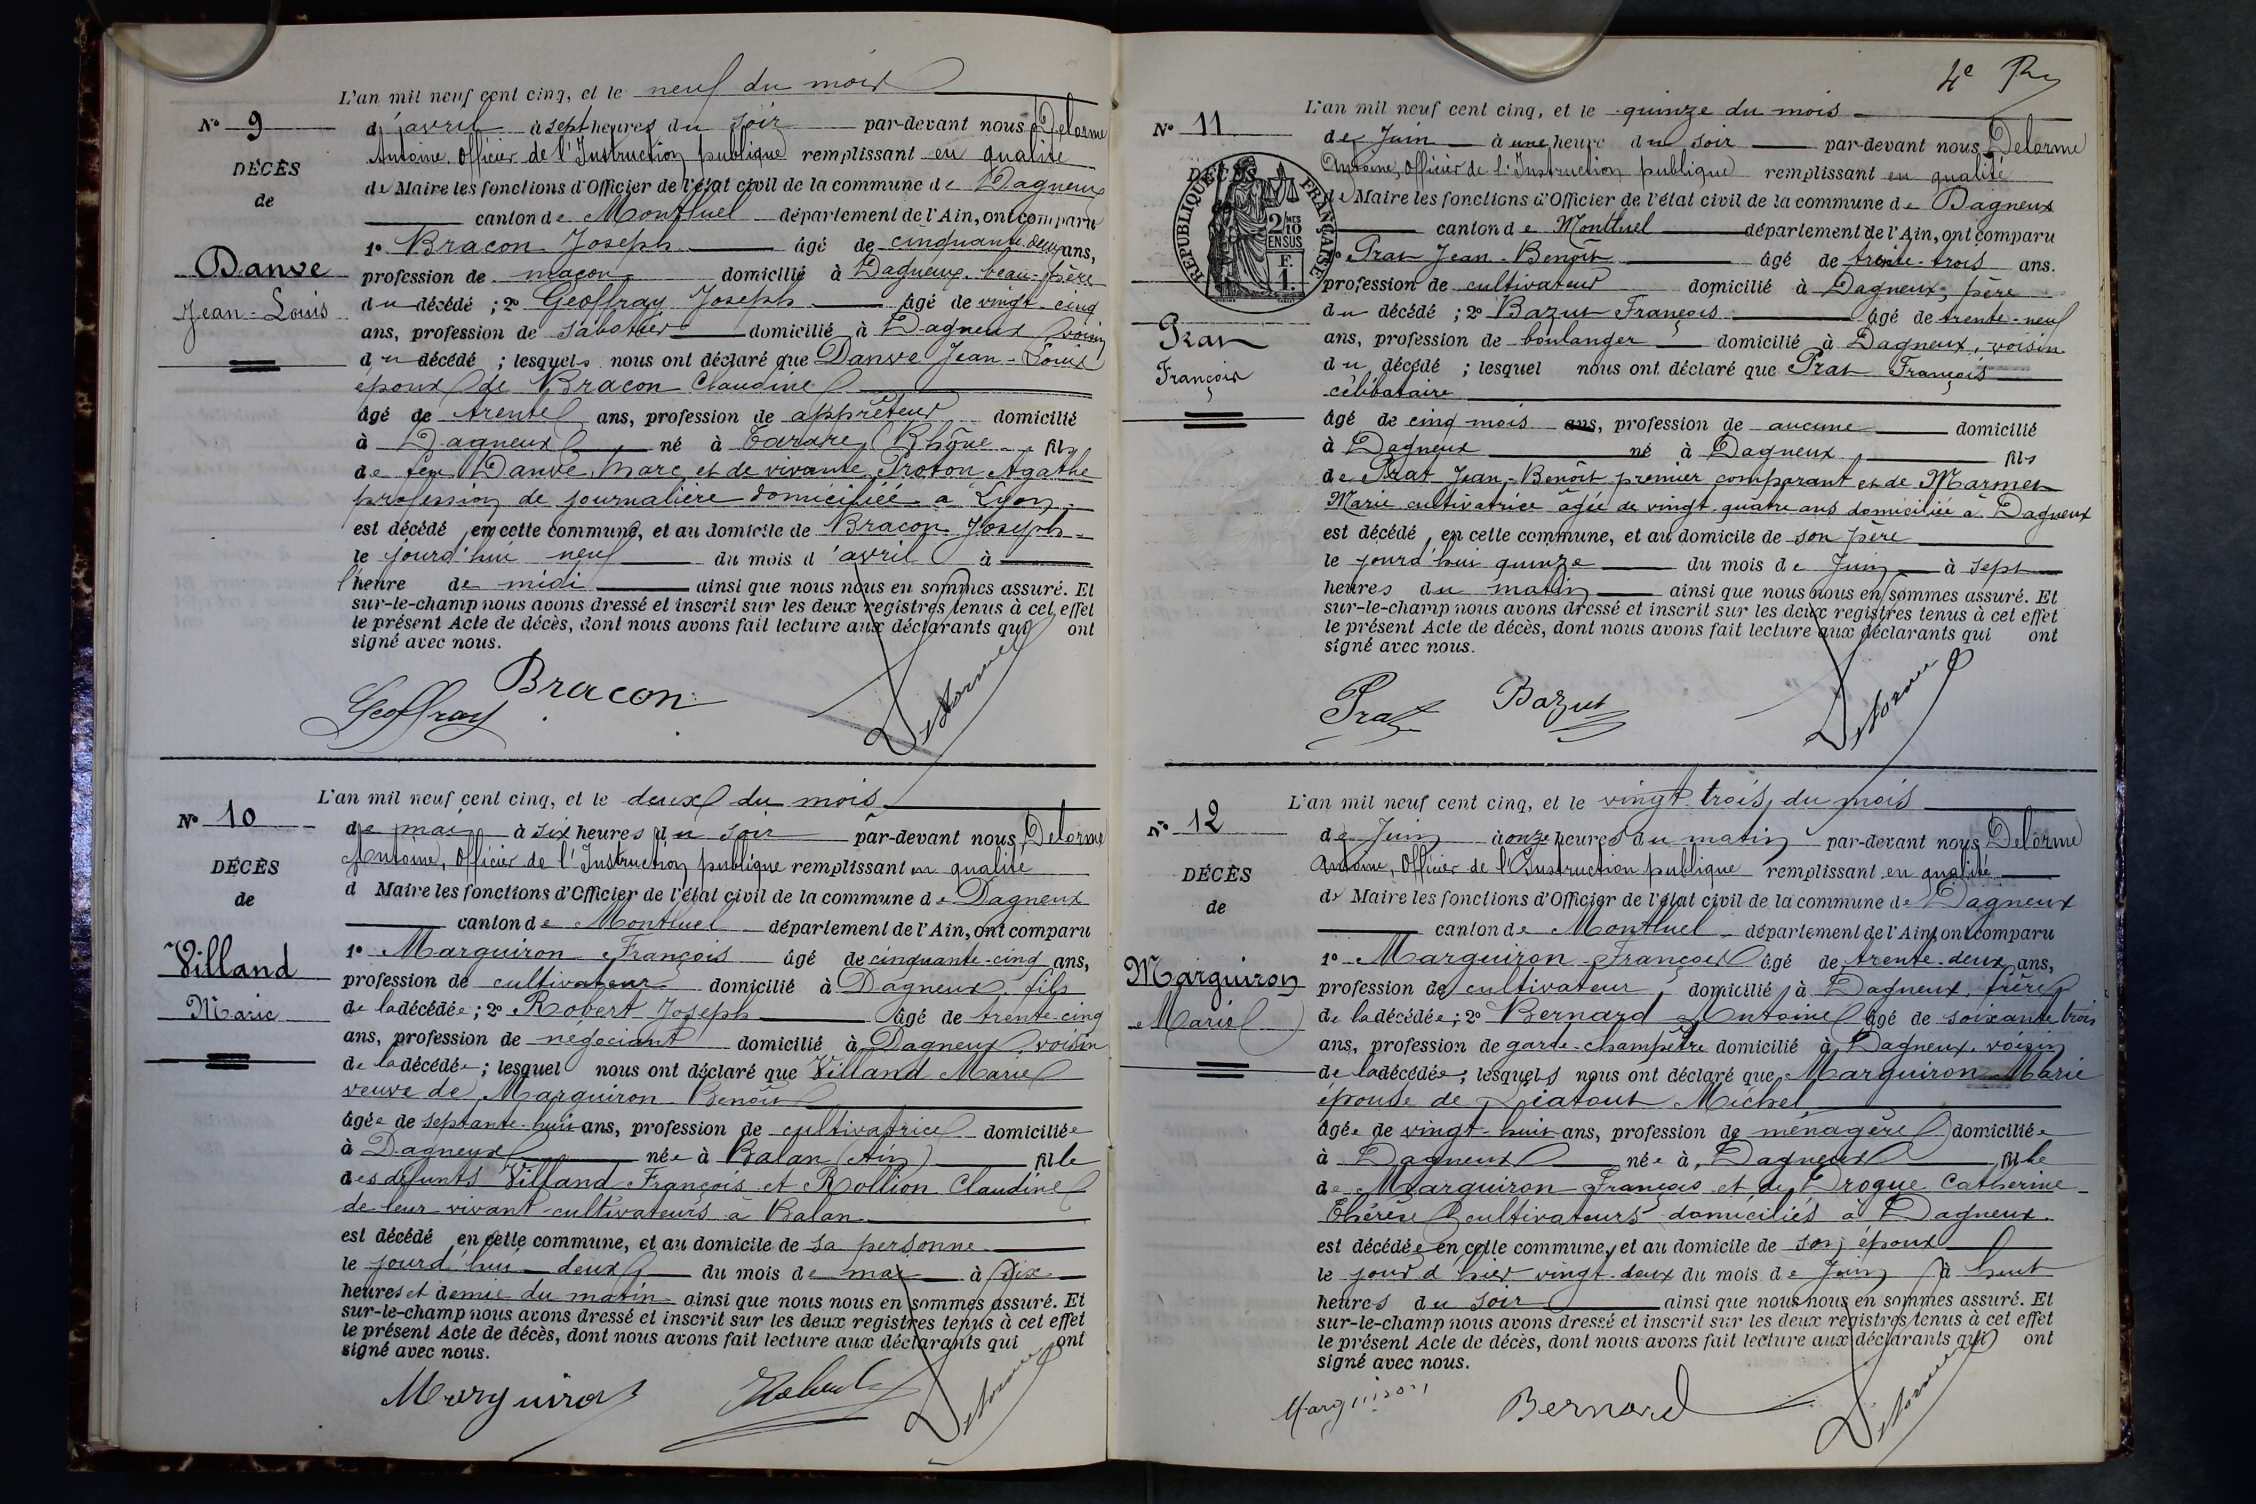 L'an mil neuf cent cinq, et le neuf du mois
N° 9
d'avril à sept heures du soir par-devant nous Delorme
Antoine, Officier de l'Instruction publique remplissant en qualité
DÉCÈS
de Maire les fonctions d'Officier de l'état civil de la commune de Dagneux
de
canton de Montluel département de l'Ain, ont comparu
1° Bracon Joseph âgé de cinquante-deux ans,
Danve
profession de maçon domicilié à Dagneux, beau-père
Jean-Louis
du décédé ; 2° Geoffray Joseph âgé de vingt-cinq
ans, profession de sabotier domicilié à Dagneux voisin
du décédé ; lesquels nous ont déclaré que Danve Jean-Louis
époux de Bracon Claudine
âgé de trente ans, profession de apprêteur domicilié
à Dagneux né à Tarare, Rhône fils
de feu Danve Marc et de vivante Proton Agathe
profession de journalière domiciliée à Lyon
est décédé en cette commune, et au domicile de Bracon Joseph
le jourd'hui neuf du mois d'avril à
l'heure de midi ainsi que nous nous en sommes assuré. Et
sur-le-champ nous avons dressé et inscrit sur les deux registres tenus à cet effet
le présent Acte de décès, dont nous avons fait lecture aux déclarants qui ont
signé avec nous.
Geoffray Bracon Delorme
L'an mil neuf cent cinq, et le deux du mois
N° 10
de mai à six heures du soir par-devant nous Delorme
Antoine, Officier de l'Instruction publique remplissant en qualité
DÉCÈS
d Maire les fonctions d'Officier de l'état civil de la commune de Dagneux
de
canton de Montluel département de l'Ain, ont comparu
1° Marguiron François âgé de cinquante-cinq ans,
Villand
profession de cultivateur domicilié à Dagneux, fils
Marie
de la décédée ; 2° Robert Joseph âgé de trente-cinq
ans, profession de négociant domicilié à Dagneux, voisin
de la décédée ; lesquel nous ont déclaré que Villand Marie
veuve de Marguiron Benoît
âgée de septante-huit ans, profession de cultivatrice domiciliée
à Dagneux née à Balan (Ain) fille
des défunts Villand François et Rollion Claudine
de leur vivant cultivateurs à Balan
est décédé en cette commune, et au domicile de sa personne
le jourd'hui deux du mois de mai à dix
heures et demie du matin ainsi que nous nous en sommes assuré. Et
sur-le-champ nous avons dressé et inscrit sur les deux registres tenus à cet effet
le présent Acte de décès, dont nous avons fait lecture aux déclarants qui ont
signé avec nous.
Marguiron Robert Delorme
4e
L'an mil neuf cent cinq, et le quinze du mois
N° 11
de Juin à une heure du soir par-devant nous Delorme
Antoine, Officier de l'Instruction publique remplissant en qualité
DÉCÈS
RÉPUBLIQUE FRANÇAISE
2/10 MES
EN SUS
F. 1.
de Maire les fonctions d'Officier de l'état civil de la commune de Dagneux
canton de Montluel département de l'Ain, ont comparu
1° Prat Jean-Benoît âgé de trente-trois ans.
profession de cultivateur domicilié à Dagneux, père
du décédé ; 2° Bazut François âgé de trente-neuf
Prat
ans, profession de boulanger domicilié à Dagneux, voisin
François
du décédé ; lesquel nous ont déclaré que Prat François
célibataire
âgé de cinq mois ans, profession de aucune domicilié
à Dagneux né à Dagneux fils
de Prat Jean-Benoît premier comparant et de Marmet
Marie cultivatrice âgée de vingt-quatre ans domiciliée à Dagneux
est décédé, en cette commune, et au domicile de son père
le jourd'hui quinze du mois de Juin à sept
heures du matin ainsi que nous nous en sommes assuré. Et
sur-le-champ nous avons dressé et inscrit sur les deux registres tenus à cet effet
le présent Acte de décès, dont nous avons fait lecture aux déclarants qui ont
signé avec nous.
Prat Bazut Delorme
L'an mil neuf cent cinq, et le vingt-trois du mois
N° 12
de Juin à onze heures du matin par-devant nous Delorme
Antoine, Officier de l'Instruction publique remplissant en qualité
DÉCÈS
de Maire les fonctions d'Officier de l'état civil de la commune de Dagneux
de
canton de Montluel département de l'Ain, ont comparu
1° Marguiron François âgé de trente-deux ans,
Marguiron
profession de cultivateur domicilié à Dagneux, frère
Marie
de la décédée ; 2° Bernard Antoine âgé de soixante trois
ans, profession de garde-champêtre domicilié à Dagneux, voisin
de la décédée ; lesquels nous ont déclaré que Marguiron Marie
épouse de Liatout Michel
âgée de vingt-huit ans, profession de ménagère domiciliée
à Dagneux née à Dagneux fille
de Marguiron François et de Drogue Catherine
Thérèse cultivateurs domiciliés à Dagneux.
est décédée en cette commune, et au domicile de son époux
le jour d'hier vingt-deux du mois de Juin à huit
heures du soir ainsi que nous nous en sommes assuré. Et
sur-le-champ nous avons dressé et inscrit sur les deux registres tenus à cet effet
le présent Acte de décès, dont nous avons fait lecture aux déclarants qui ont
signé avec nous.
Marguiron Bernard Delorme